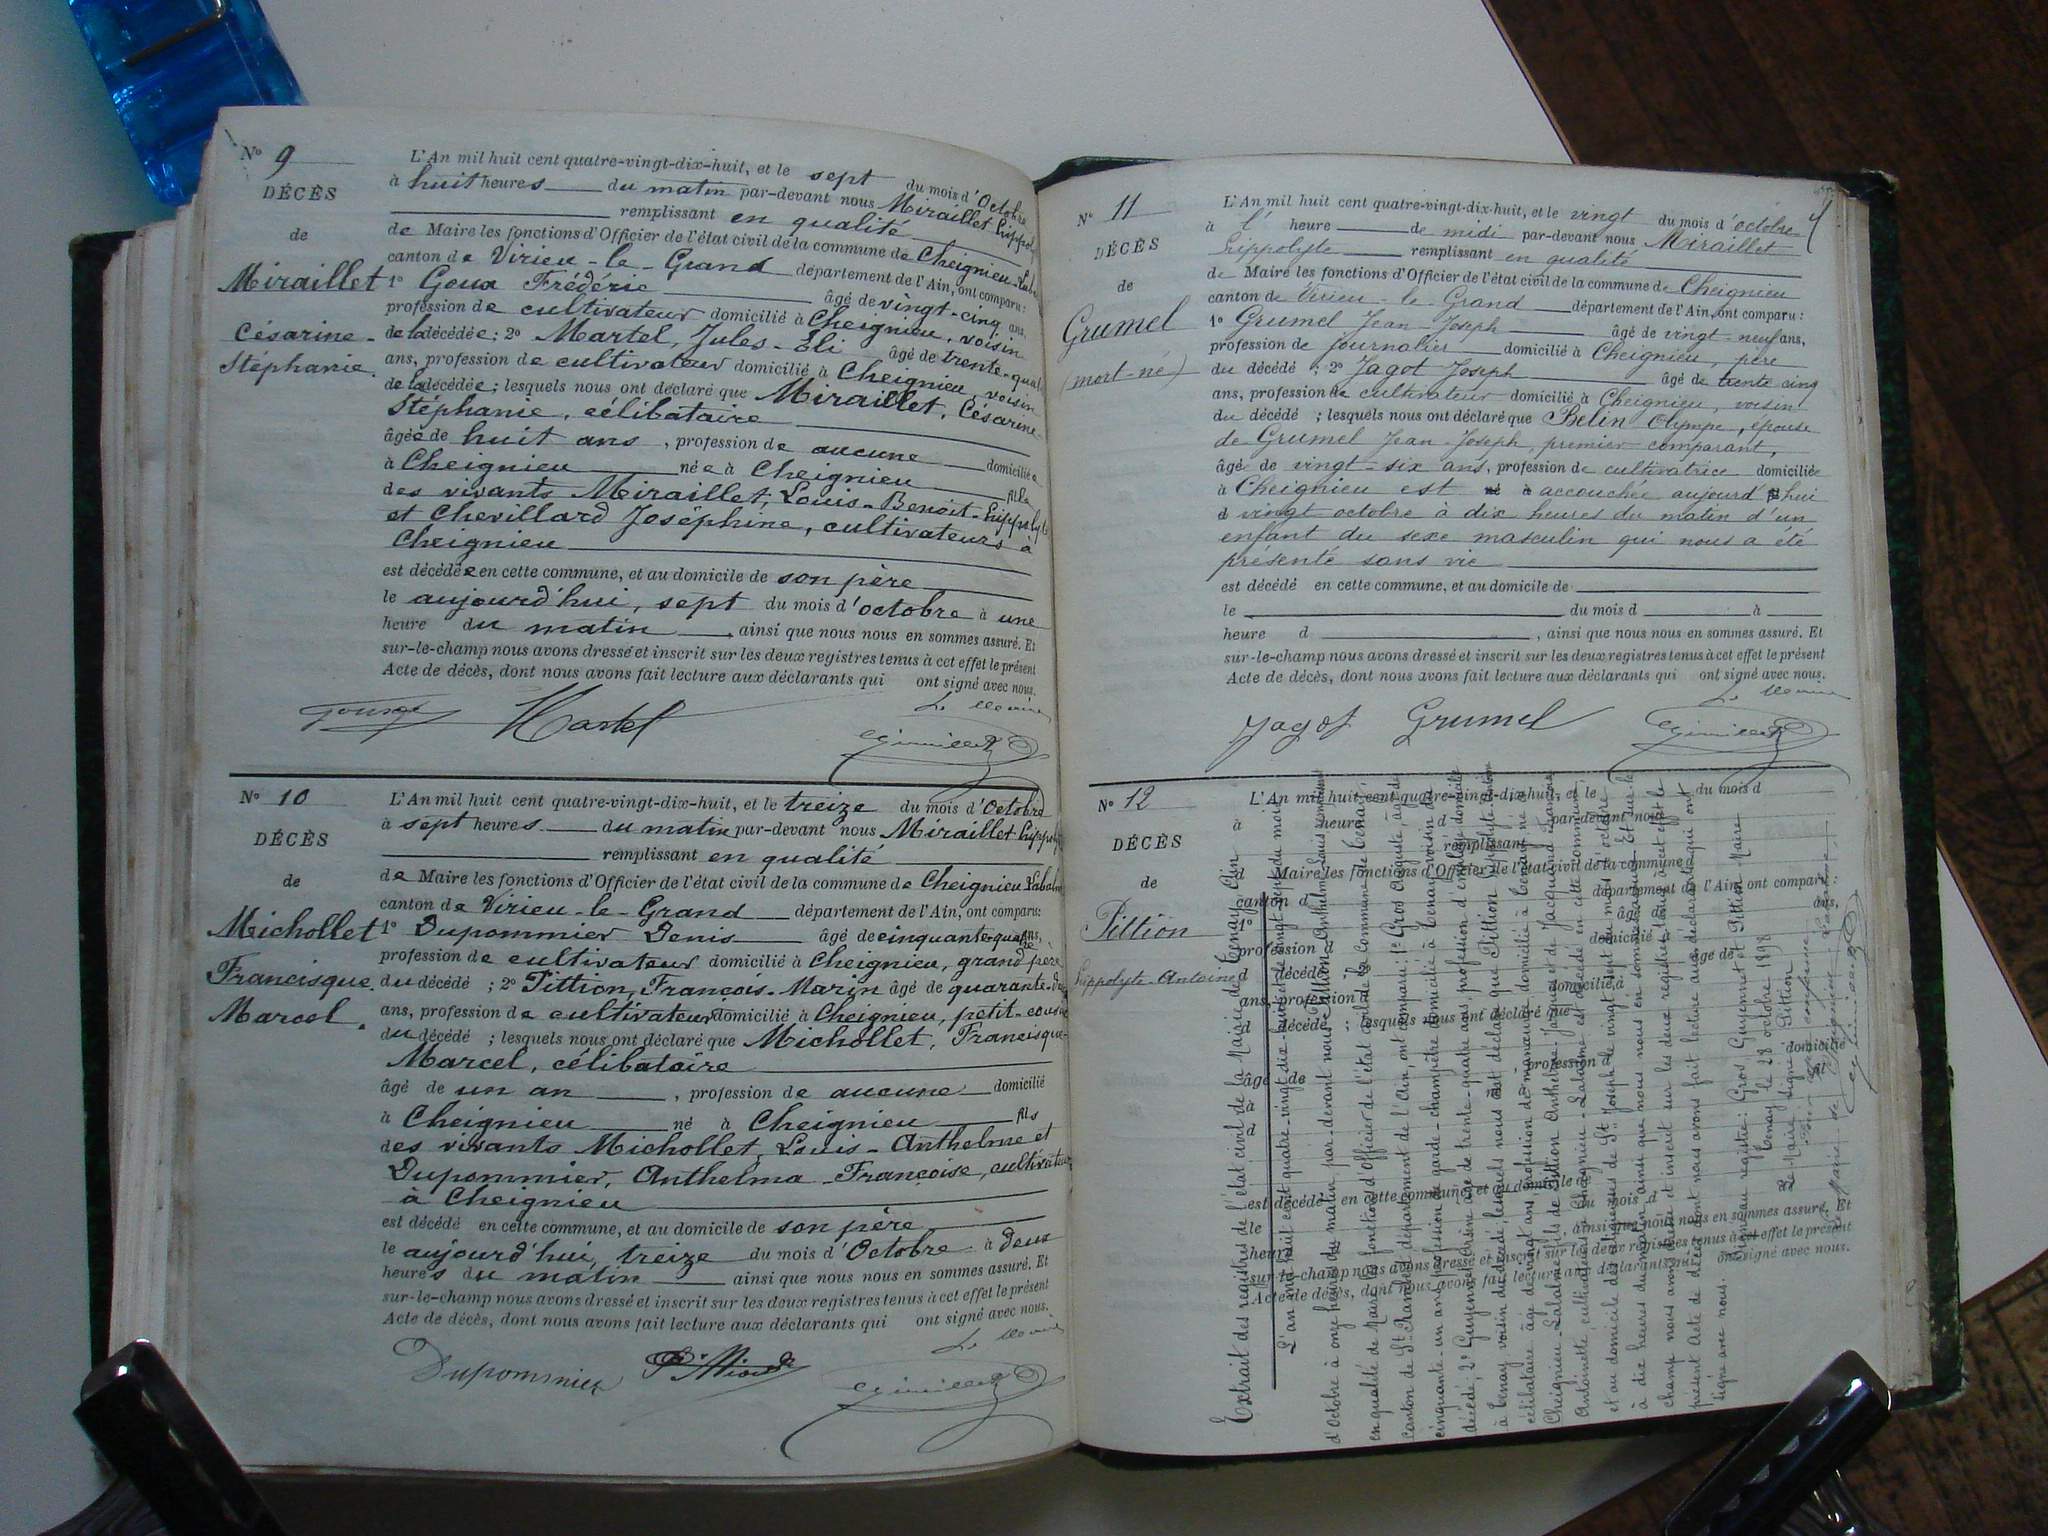 N° 9
DÉCÈS
de
Miraillet
Césarine-
Stéphanie.
L'An mil huit cent quatre-vingt-dix-huit, et le sept du mois d'Octobre
à huit heures du matin par-devant nous Miraillet Hippol
remplissant en qualité
de Maire les fonctions d'Officier de l'état civil de la commune de Cheignieu-Laba
canton de Virieu-le-Grand département de l'Ain, ont comparu:
1° Goux Frédéric âgé de vingt-cinq ans,
profession de cultivateur domicilié à Cheignieu, voisin
de la décédée; 2° Martel, Jules-Eli âgé de trente-quat
ans, profession de cultivateur domicilié à Cheignieu, voisin
de la décédée; lesquels nous ont déclaré que Miraillet, Césarine-
Stéphanie, célibataire
âgée de huit ans, profession de aucune domiciliée
à Cheignieu née à Cheignieu fille
des vivants Miraillet, Louis-Benoit-Hippolyte
et Chevillard Joséphine, cultivateurs à
Cheignieu
est décédée en cette commune, et au domicile de son père
le aujourd'hui, sept du mois d'octobre à une
heure du matin, ainsi que nous nous en sommes assuré. Et
sur-le-champ nous avons dressé et inscrit sur les deux registres tenus à cet effet le présent
Acte de décès, dont nous avons fait lecture aux déclarants qui ont signé avec nous.
Martel
Le Maire
N° 10
DÉCÈS
de
Michollet
Francisque.
Marcel.
L'An mil huit cent quatre-vingt-dix-huit, et le treize du mois d'Octobre
à sept heures du matin par-devant nous Miraillet Hippoly
remplissant en qualité
de Maire les fonctions d'Officier de l'état civil de la commune de Cheignieu-Labalm
canton de Virieu-le-Grand département de l'Ain, ont comparu:
1° Dupommier Denis âgé de cinquante-quatre ans,
profession de cultivateur domicilié à Cheignieu, grand père
du décédé ; 2° Pittion, François-Marin âgé de quarante-d
ans, profession de cultivateur domicilié à Cheignieu, petit-cousin
du décédé ; lesquels nous ont déclaré que Michollet, Francisque-
Marcel, célibataire
âgé de un an, profession de aucune domicilié
à Cheignieu né à Cheignieu fils
des vivants Michollet, Louis-Anthelme et
Dupommier, Anthelma-Françoise, cultivateurs
à Cheignieu
est décédé en cette commune, et au domicile de son père
le aujourd'hui, treize du mois d'Octobre à deux
heures du matin ainsi que nous nous en sommes assuré. Et
sur-le-champ nous avons dressé et inscrit sur les deux registres tenus à cet effet le présent
Acte de décès, dont nous avons fait lecture aux déclarants qui ont signé avec nous.
Le Maire
Dupommier
N° 11
DÉCÈS
de
Grumel
(mort-né)
L'An mil huit cent quatre-vingt-dix-huit, et le vingt du mois d'octobre
à l' heure de midi par-devant nous Miraillet
Hippolyte remplissant en qualité
de Maire les fonctions d'Officier de l'état civil de la commune de Cheignieu
canton de Virieu-le-Grand département de l'Ain, ont comparu:
1° Grumel Jean-Joseph âgé de vingt-neuf ans,
profession de journalier domicilié à Cheignieu, père
du décédé ; 2° Jagot Joseph âgé de trente cinq
ans, profession de cultivateur domicilié à Cheignieu, voisin
du décédé ; lesquels nous ont déclaré que Belin Olympe, épouse
de Grumel Jean-Joseph, premier comparant,
âgé de vingt-six ans, profession de cultivatrice domiciliée
à Cheignieu est né à accouchée aujourd'hui
d vingt octobre à dix heures du matin d'un
enfant du sexe masculin qui nous a été
présenté sans vie
est décédé en cette commune, et au domicile de
le du mois d à
heure d , ainsi que nous nous en sommes assuré. Et
sur-le-champ nous avons dressé et inscrit sur les deux registres tenus à cet effet le présent
Acte de décès, dont nous avons fait lecture aux déclarants qui ont signé avec nous.
Le Maire
Jagot Grumel
N° 12
DÉCÈS
de
Pittion
Hippolyte-Antoine
L'An mil huit cent quatre-vingt-dix-huit, et le du mois d
à heure d par-devant nous
remplissant
d Maire les fonctions d'Officier de l'état civil de la commune
canton d département de l'Ain, ont comparu:
1° âgé de ans,
profession d domicilié à
d décédé ; 2° âgé de
ans, profession d domicilié à
d décédé ; lesquels nous ont déclaré que
âgé de , profession d domicilié
à
d
est décédé en cette commune, et au domicile de
le du mois d
heure ainsi que nous nous en sommes assuré. Et
sur-le-champ nous avons dressé et inscrit sur les deux registres tenus à cet effet le présent
Acte de décès, dont nous avons fait lecture aux déclarants qui ont signé avec nous.
Extrait des registres de l'état civil de la Mairie de Tenay, Ain
L'an mil huit cent quatre-vingt-dix-huit et le vingt sept du mois
d'Octobre à onze heures du matin par-devant nous Pittion Anthelme Louis
en qualité de Maire les fonctions d'Officier de l'état civil de la Commune de Tenay,
canton de St Rambert département de l'Ain, ont comparu: 1° Gros Auguste, âgé de
cinquante-un ans, profession de garde-champêtre domicilié à Tenay, voisin du
décédé; 2° Guyennet âgé de trente-quatre ans, profession d'employé domicilié
à Tenay voisin du décédé; lesquels nous ont déclaré que Pittion Hippolyte Antoine
célibataire âgé de vingt ans, profession de manœuvre domicilié à Tenay, né à
Cheignieu-Labalme fils de Pittion Anthelme Jacques et de Jacquand
Antoinette, cultivateurs à Cheignieu-Labalme est décédé en cette commune
et au domicile des religieuses de St Joseph le vingt sept du mois d'octobre
à dix heures du matin ainsi que nous nous en sommes assuré. Et sur le
champ nous avons dressé et inscrit sur les deux registres tenus à cet effet le
présent Acte de décès dont nous avons fait lecture aux déclarants qui ont
signé avec nous.
Signé au registre: Gros, Guyennet et Pittion Maire
Tenay le 28 octobre 1898
Le Maire signé Pittion